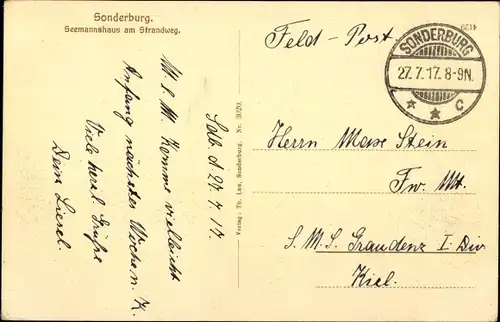 Sonderburg.
Seemannshaus am Strandweg.
Sdb. d. 27. 7. 17.
M. l. M. Komme vielleicht
Anfang nächster Woche n. K.
Viele herzl. Grüße
Dein Liesel.
Verlag: Th. Lau, Sonderburg. Nr. 3020.
Feld-Post
SONDERBURG
27.7.17. 8-9N.
* * C
Herrn Max Stein
Fw. Mt.
S. M. S. Graudenz I. Div
Kiel.